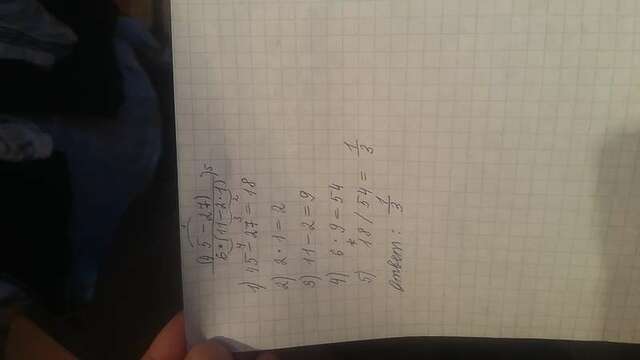 (45 - 27)
6 * (11 - 2 · 1)
1) 45 - 27 = 18
2) 2 · 1 = 2
3) 11 - 2 = 9
4) 6 · 9 = 54
5) 18 / 54 = 1/3
ответ: 1/3